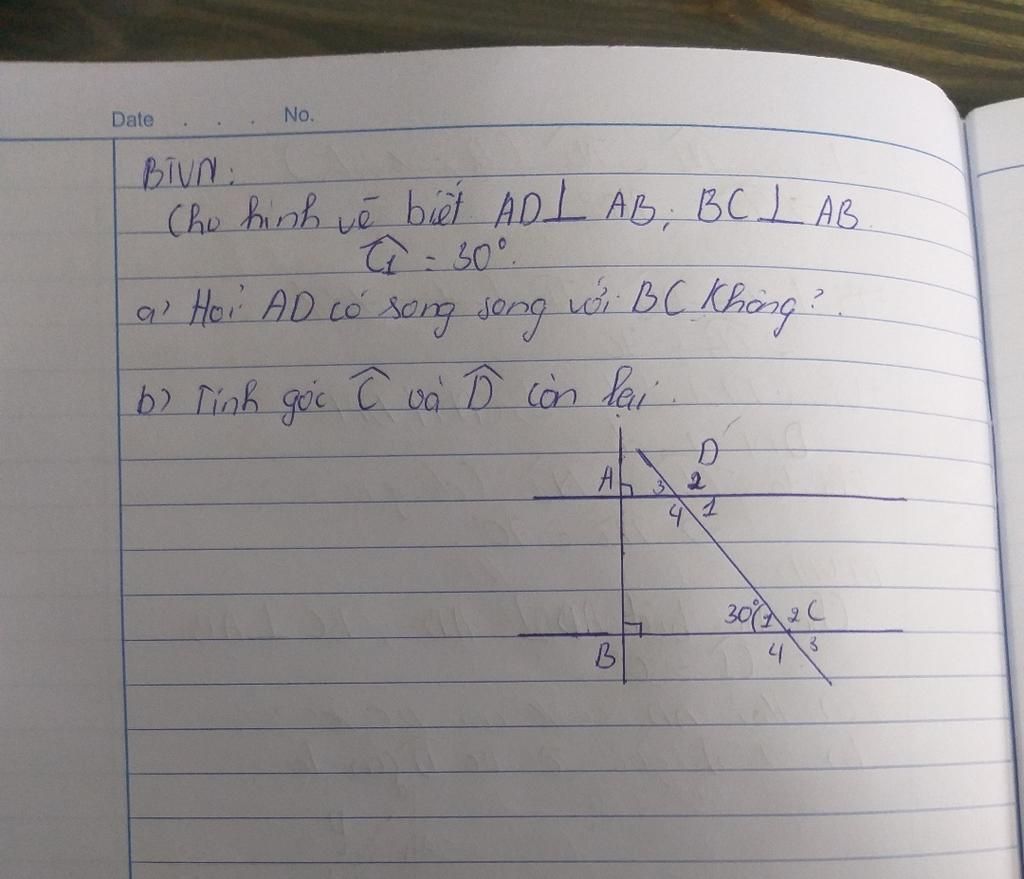 Date . . . No.
BTVN:
Cho hình vẽ biết AD⊥ AB; BC⊥ AB.
Ĉ1 = 30°.
a) Hỏi AD có song song với BC không?
b) Tính góc Ĉ và D̂ còn lại.
D
A 3 2
4 1
30° 1 2 C
B 4 3